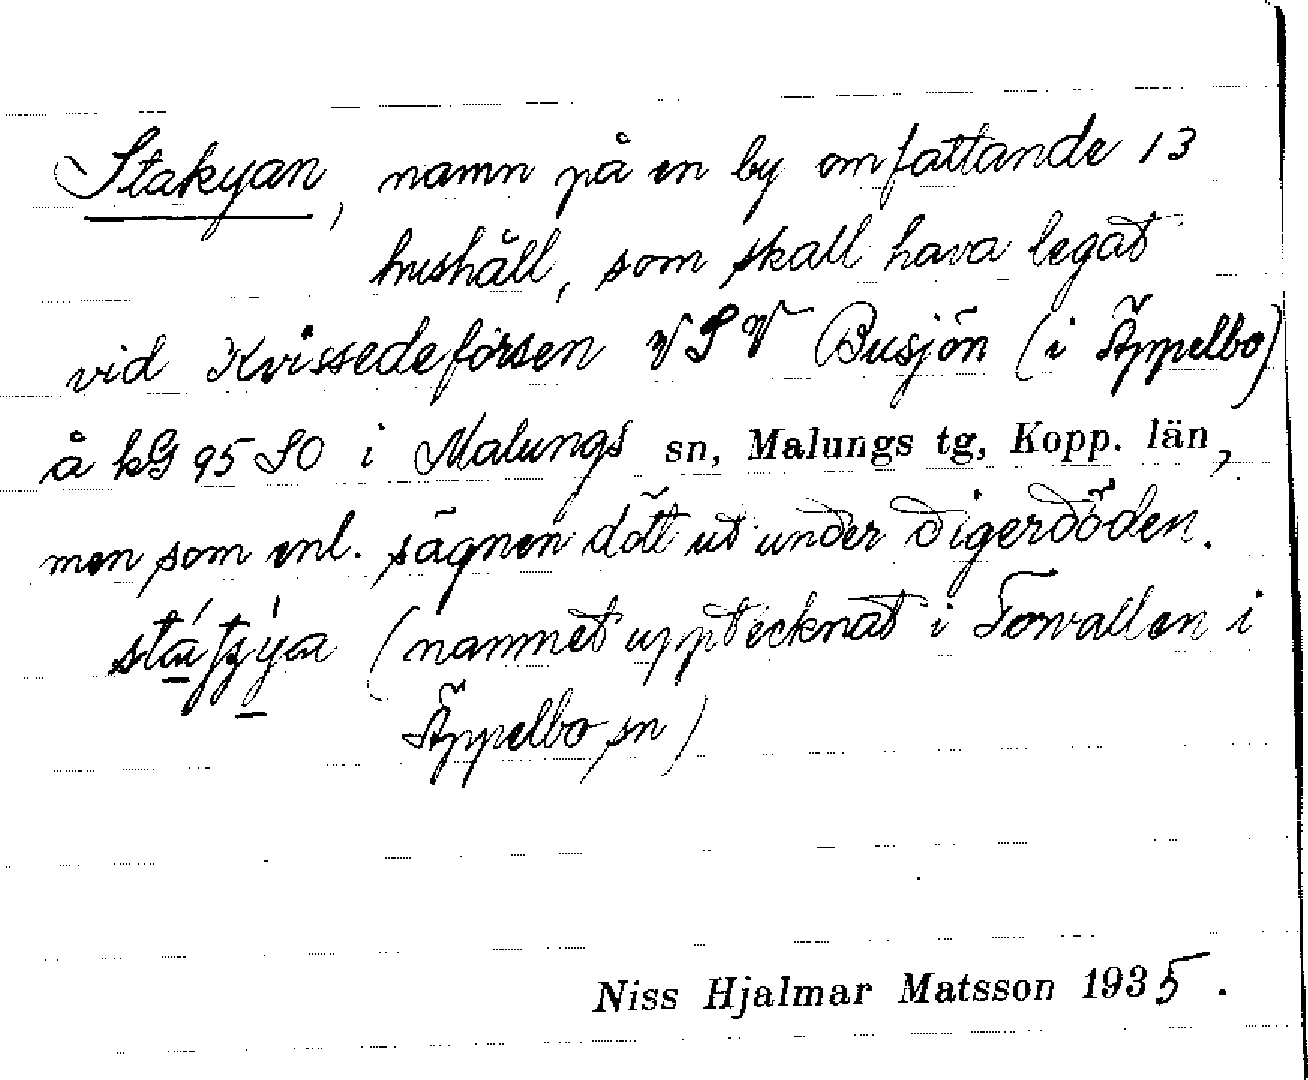 Stakyan, namn på en by omfattande 13
hushåll, som skall hava legat
vid Kvissedeforsen VSV Busjön (i Äppelbo)
å kG 95 SO i Malungs sn, Malungs tg, Kopp. län,
men som enl. sägnen dött ut under digerdöden.
(namnet upptecknat i Torvallen i
Äppelbo sn)
Niss Hjalmar Matsson 1935.